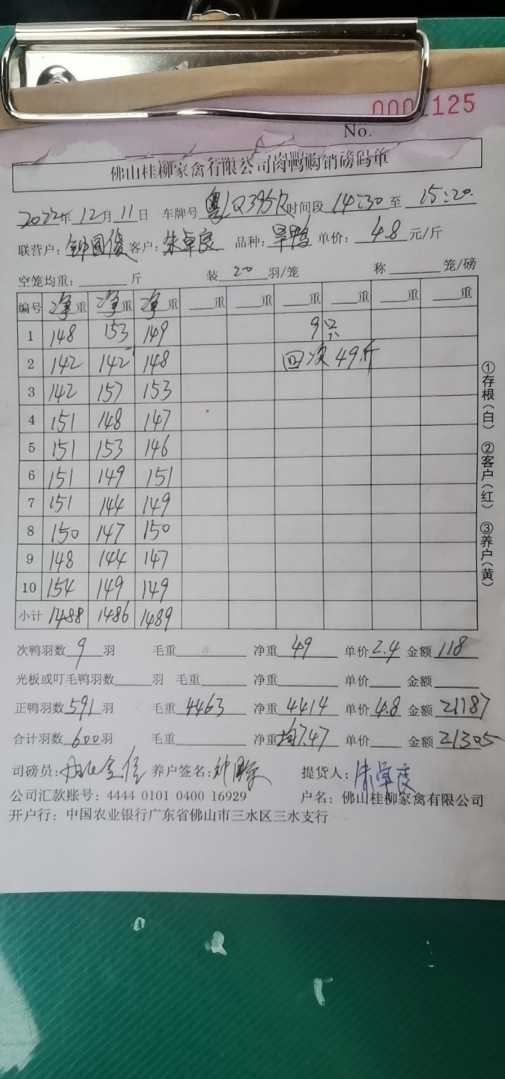 No. 0001125
佛山桂柳家禽有限公司肉鸭购销磅码单
2022年 12月 11日 车牌号 粤 时间段 14:30 至 15:20
联营户: 客户: 朱卓良 品种: 旱鸭 单价: 4.8 元/斤
空笼均重: 斤 装 20 羽/笼 称 笼/磅
编号 净重 净重 净重 重 重 重 重 重
1 148 153 149 9只
2 142 142 148 回次 49斤
3 142 157 153
4 151 148 147
5 151 153 146
6 151 149 151
7 151 144 149
8 150 147 150
9 148 144 147
10 154 149 149
小计 1488 1486 1489
次鸭羽数 9 羽 毛重 净重 49 单价 2.4 金额 118
光板或叮毛鸭羽数 羽 毛重 净重 单价 金额
正鸭羽数 591 羽 毛重 4463 净重 4414 单价 4.8 金额 21187
合计羽数 600 羽 净重 均7.47 单价 金额 21305
司磅员: 养户签名: 提货人: 朱卓良
公司汇款账号: 4444 0101 0400 16929 户名: 佛山桂柳家禽有限公司
开户行: 中国农业银行广东省佛山市三水区三水支行
①存根(白) ②客户(红) ③养户(黄)